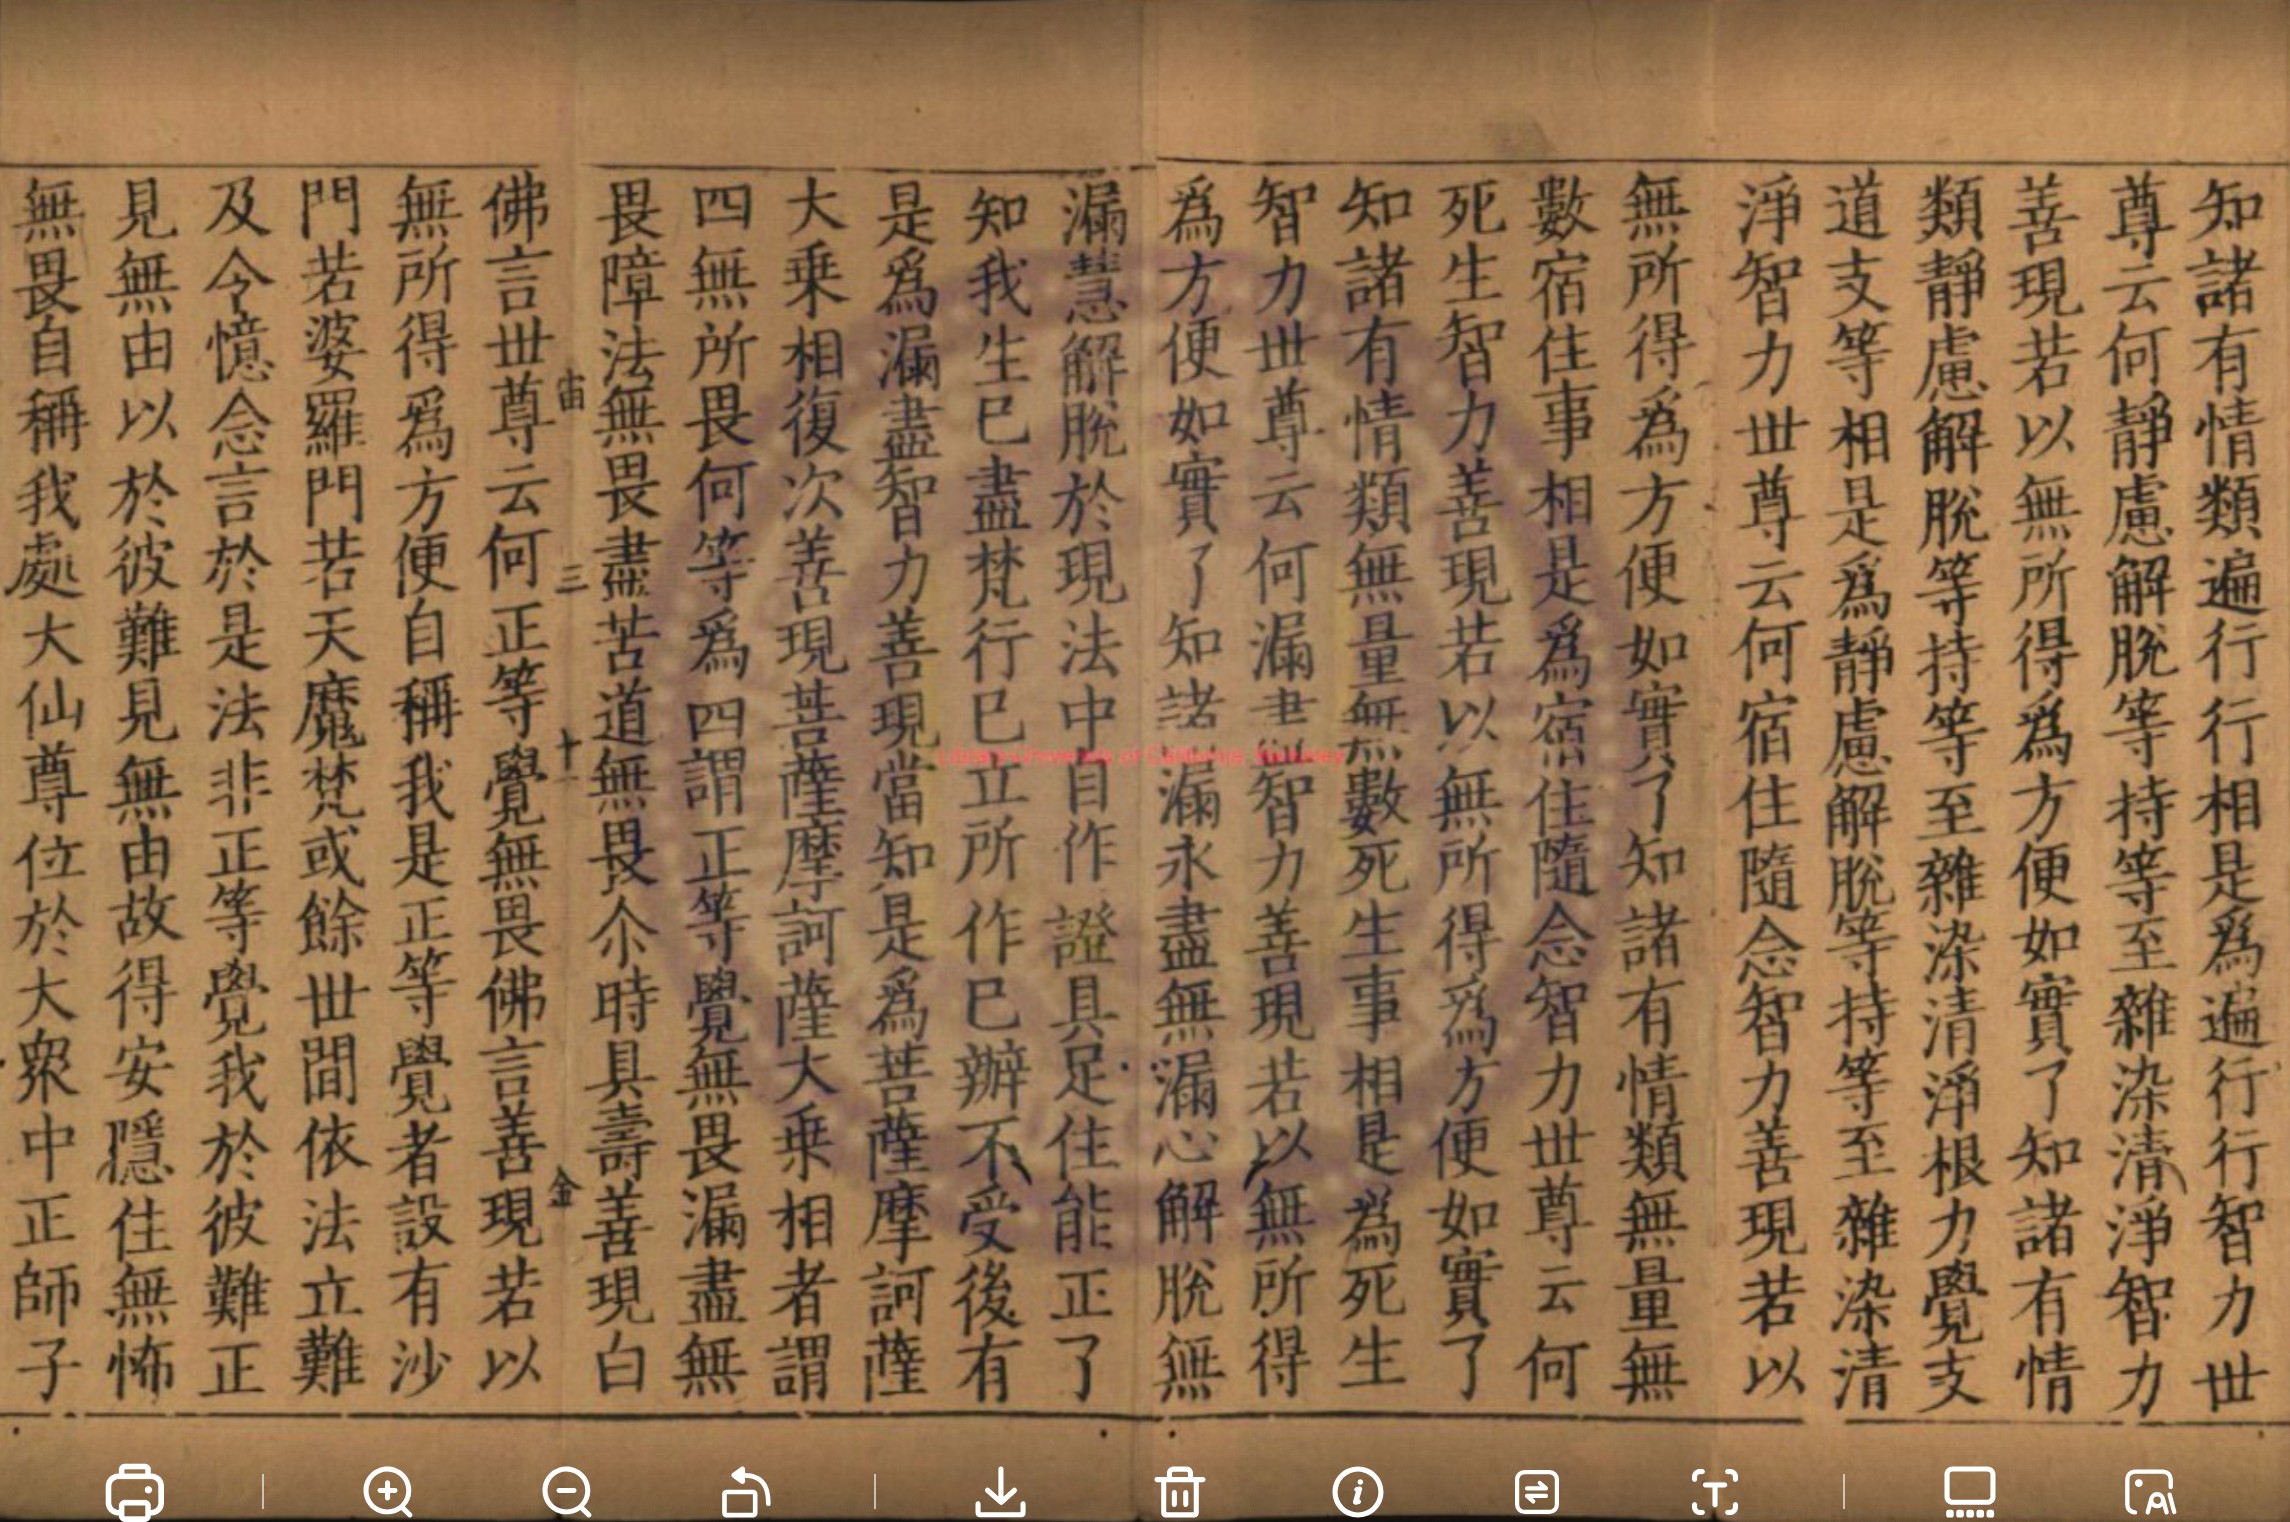 知諸有情類遍行行相是爲遍行行智力世
尊云何靜慮解脫等持等至雜染清淨智力
善現若以無所得爲方便如實了知諸有情
類靜慮解脫等持等至雜染清淨根力覺支
道支等相是爲靜慮解脫等持等至雜染清
淨智力世尊云何宿住隨念智力善現若以
無所得爲方便如實了知諸有情類無量無
數宿住事相是爲宿住隨念智力世尊云何
死生智力善現若以無所得爲方便如實了
知諸有情類無量無數死生事相是爲死生
智力世尊云何漏盡智力善現若以無所得
爲方便如實了知諸漏永盡無漏心解脫無
漏慧解脫於現法中自作證具足住能正了
知我生已盡梵行已立所作已辦不受後有
是爲漏盡智力善現當知是爲菩薩摩訶薩
大乗相復次善現菩薩摩訶薩大乗相者謂
四無所畏何等爲四謂正等覺無畏漏盡無
畏障法無畏盡苦道無畏尒時具壽善現白
宙 三 十 金
佛言世尊云何正等覺無畏佛言善現若以
無所得爲方便自稱我是正等覺者設有沙
門若婆羅門若天魔梵或餘世間依法立難
及令憶念言於是法非正等覺我於彼難正
見無由以於彼難見無由故得安隱住無怖
無畏自稱我處大仙尊位於大衆中正師子
Library University of California, Berkeley